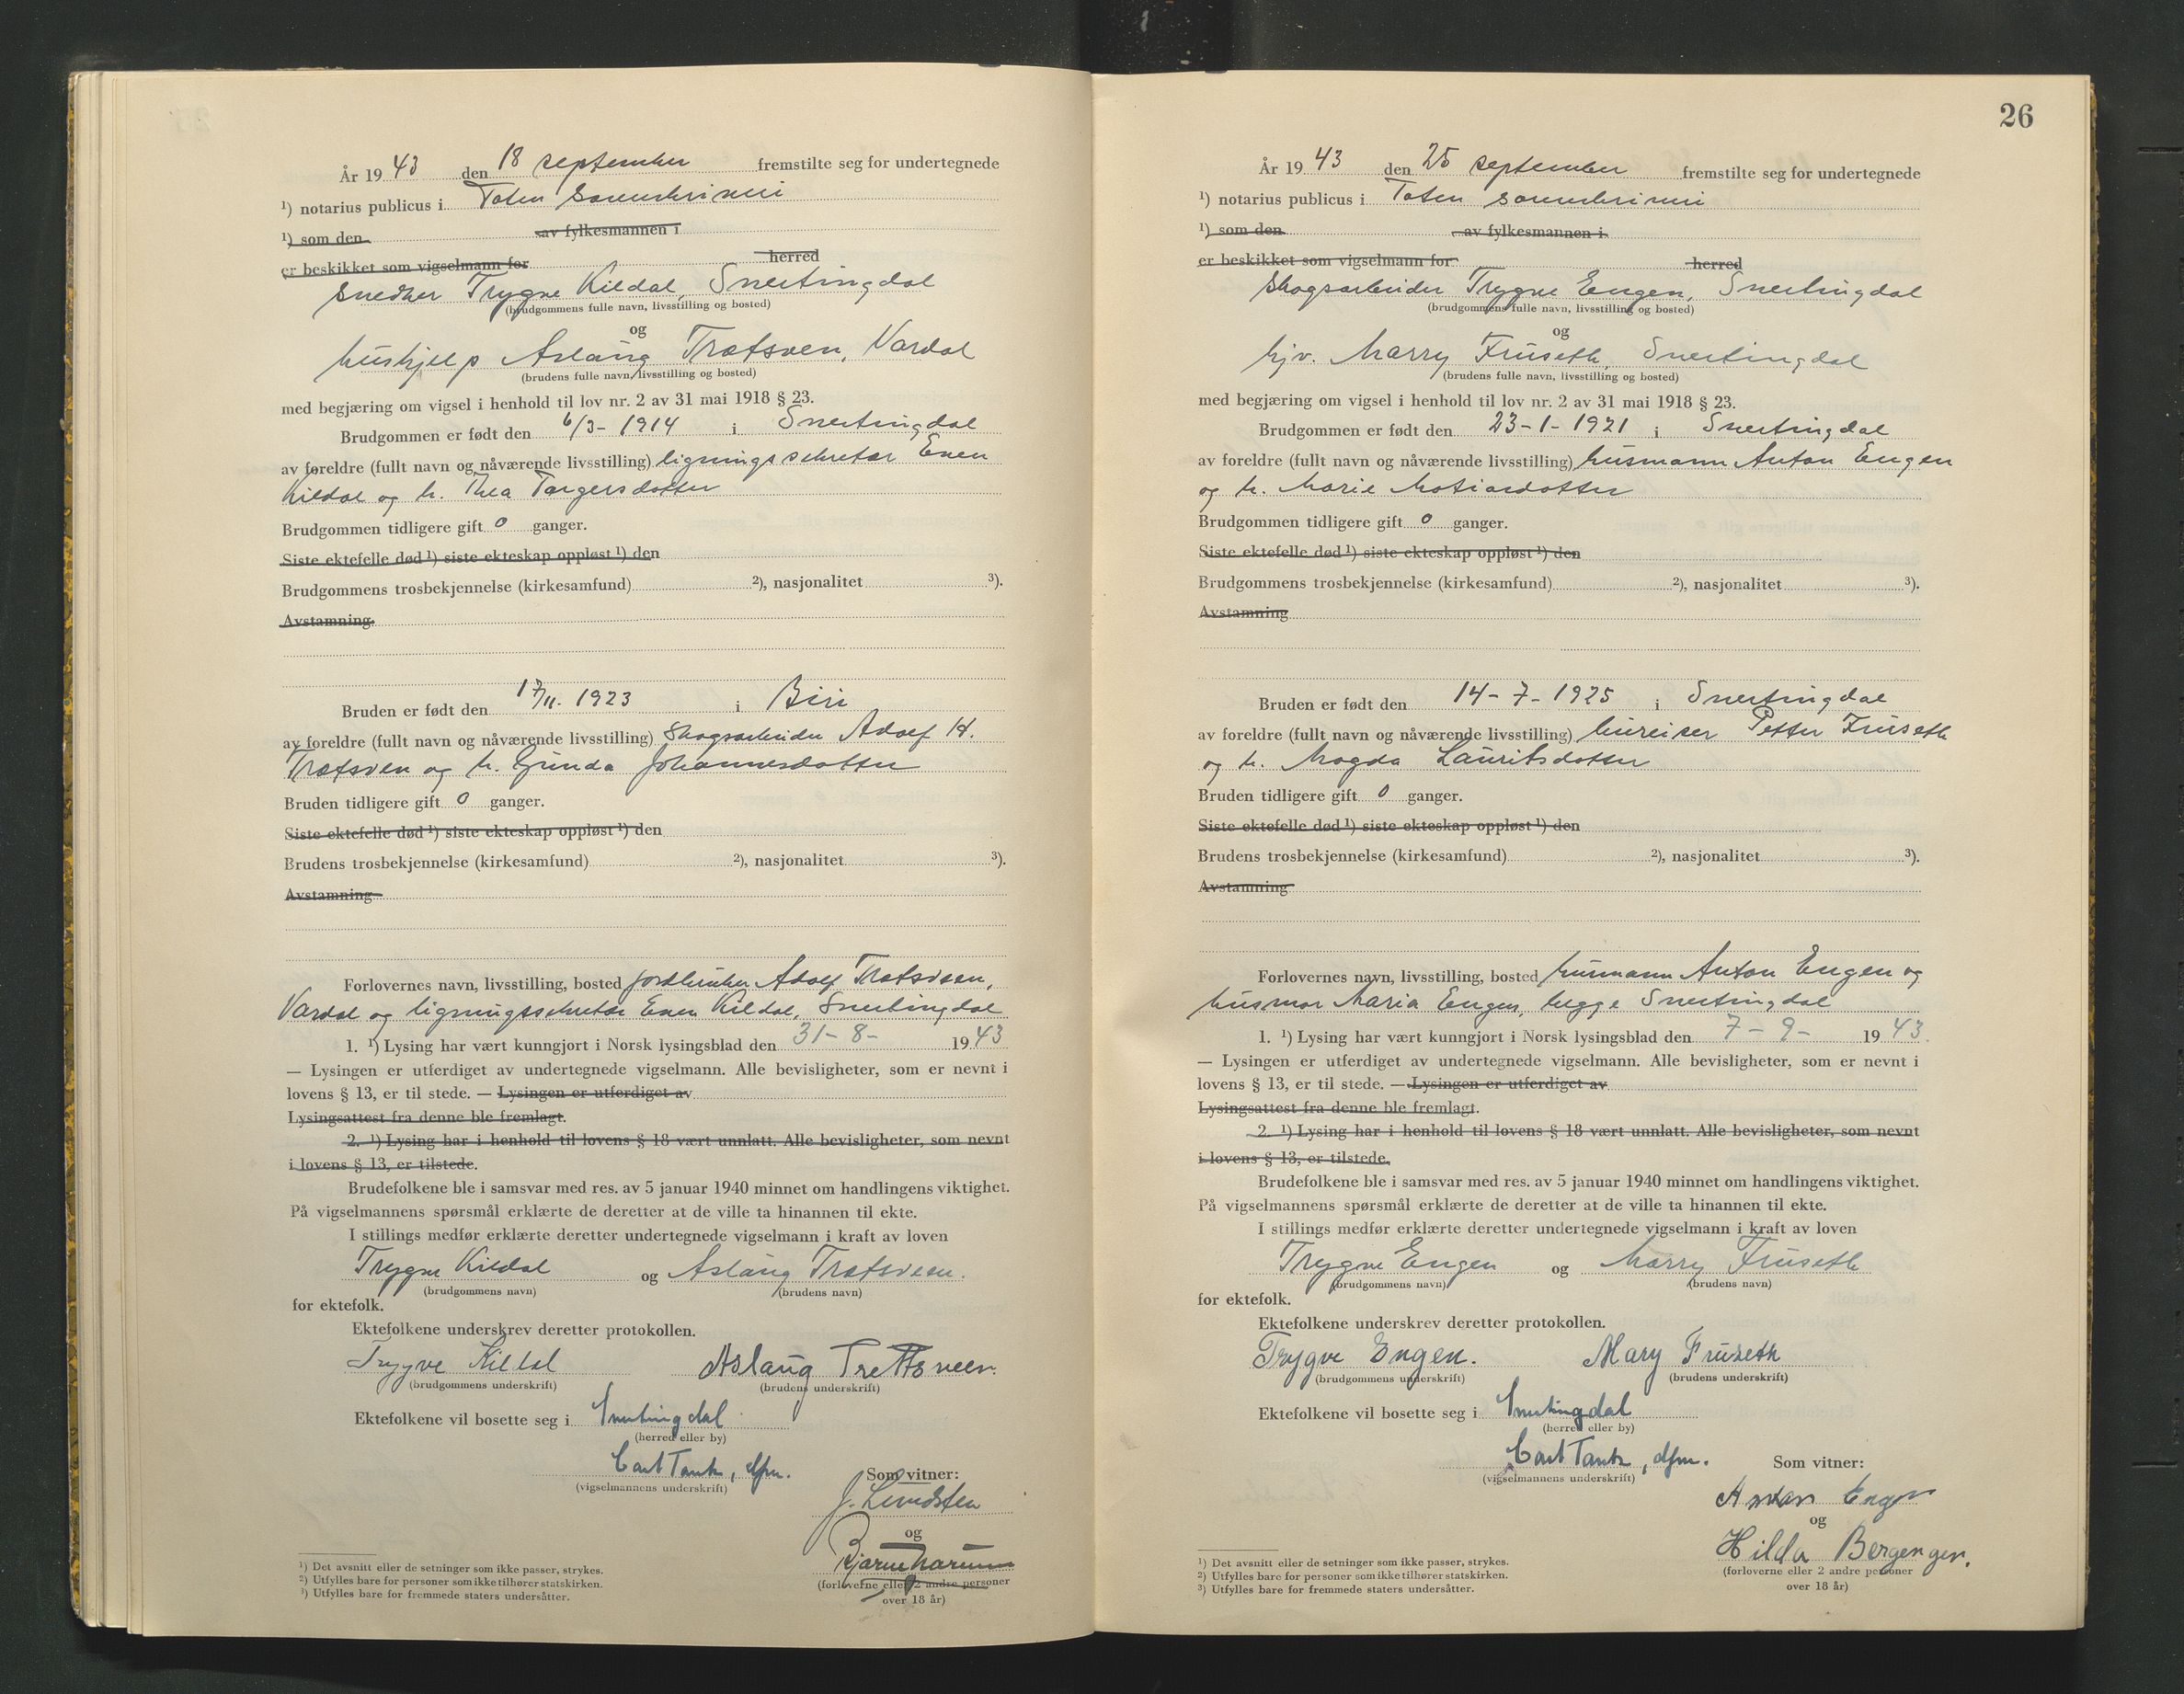 År 19 43 den 18 september fremstilte seg for undertegnede
¹) notarius publicus i Toten sorenskriveri
¹) som den av fylkesmannen i
er beskikket som vigselmann for herred
Snedker Trygve Kildal, Snertingdal
(brudgommens fulle navn, livsstilling og bosted)
og
hushjelp Aslaug Trætsven, Vardal
(brudens fulle navn, livsstilling og bosted)
med begjæring om vigsel i henhold til lov nr. 2 av 31 mai 1918 § 23.
Brudgommen er født den 6/3- 1914 i Snertingdal
av foreldre (fullt navn og nåværende livsstilling) ligningssekretær Even
Kildal og h. Thea Torgersdatter
Brudgommen tidligere gift 0 ganger.
Siste ektefelle død ¹) siste ekteskap oppløst ¹) den
Brudgommens trosbekjennelse (kirkesamfund) ²), nasjonalitet ³).
Avstamning
Bruden er født den 17/11. 1923 i Biri
av foreldre (fullt navn og nåværende livsstilling) Skogsarbeider Adolf H.
Trætsven og h. Gunda Johannesdatter
Bruden tidligere gift 0 ganger.
Siste ektefelle død ¹) siste ekteskap oppløst ¹) den
Brudens trosbekjennelse (kirkesamfund) ²), nasjonalitet ³).
Avstamning
Forlovernes navn, livsstilling, bosted jordbruker Adolf Trætsveen,
Vardal og ligningssekretær Even Kildal, Snertingdal
1. ¹) Lysing har vært kunngjort i Norsk lysingsblad den 31-8- 19 43
— Lysingen er utferdiget av undertegnede vigselmann. Alle bevisligheter, som er nevnt i
lovens § 13, er til stede. — Lysingen er utferdiget av
Lysingsattest fra denne ble fremlagt.
2. ¹) Lysing har i henhold til lovens § 18 vært unnlatt. Alle bevisligheter, som nevnt
i lovens § 13, er tilstede.
Brudefolkene ble i samsvar med res. av 5 januar 1940 minnet om handlingens viktighet.
På vigselmannens spørsmål erklærte de deretter at de ville ta hinannen til ekte.
I stillings medfør erklærte deretter undertegnede vigselmann i kraft av loven
Trygve Kildal og Aslaug Trætsveen.
(brudgommens navn) (brudens navn)
for ektefolk.
Ektefolkene underskrev deretter protokollen.
Trygve Kildal Aslaug Trettsveen.
(brudgommens underskrift) (brudens underskrift)
Ektefolkene vil bosette seg i Snertingdal
(herred eller by)
Carl Tank, dfm.
(vigselmannens underskrift)
Som vitner:
J. Lundsten
og
Bjarne Narum
(forloverne eller 2 andre personer
over 18 år)
¹) Det avsnitt eller de setninger som ikke passer, strykes.
²) Utfylles bare for personer som ikke tilhører statskirken.
³) Utfylles bare for fremmede staters undersåtter.
26
År 19 43 den 25 september fremstilte seg for undertegnede
¹) notarius publicus i Toten sorenskriveri
¹) som den av fylkesmannen i
er beskikket som vigselmann for herred
Skogsarbeider Trygve Engen, Snertingdal
(brudgommens fulle navn, livsstilling og bosted)
og
hjv. Marry Fruseth, Snertingdal
(brudens fulle navn, livsstilling og bosted)
med begjæring om vigsel i henhold til lov nr. 2 av 31 mai 1918 § 23.
Brudgommen er født den 23-1-1921 i Snertingdal
av foreldre (fullt navn og nåværende livsstilling) husmann Anton Engen
og h. Marie Matiasdatter
Brudgommen tidligere gift 0 ganger.
Siste ektefelle død ¹) siste ekteskap oppløst ¹) den
Brudgommens trosbekjennelse (kirkesamfund) ²), nasjonalitet ³).
Avstamning
Bruden er født den 14-7-1925 i Snertingdal
av foreldre (fullt navn og nåværende livsstilling) bureiser Petter Fruseth
og h. Magda Lauritsdatter
Bruden tidligere gift 0 ganger.
Siste ektefelle død ¹) siste ekteskap oppløst ¹) den
Brudens trosbekjennelse (kirkesamfund) ²), nasjonalitet ³).
Avstamning
Forlovernes navn, livsstilling, bosted husmann Anton Engen og
husmor Maria Engen, begge Snertingdal
1. ¹) Lysing har vært kunngjort i Norsk lysingsblad den 7-9- 19 43.
— Lysingen er utferdiget av undertegnede vigselmann. Alle bevisligheter, som er nevnt i
lovens § 13, er til stede. — Lysingen er utferdiget av
Lysingsattest fra denne ble fremlagt.
2. ¹) Lysing har i henhold til lovens § 18 vært unnlatt. Alle bevisligheter, som nevnt
i lovens § 13, er tilstede.
Brudefolkene ble i samsvar med res. av 5 januar 1940 minnet om handlingens viktighet.
På vigselmannens spørsmål erklærte de deretter at de ville ta hinannen til ekte.
I stillings medfør erklærte deretter undertegnede vigselmann i kraft av loven
Trygve Engen og Marry Fruseth
(brudgommens navn) (brudens navn)
for ektefolk.
Ektefolkene underskrev deretter protokollen.
Trygve Engen. Mary Fruseth
(brudgommens underskrift) (brudens underskrift)
Ektefolkene vil bosette seg i Snertingdal
(herred eller by)
Carl Tank, dfm.
(vigselmannens underskrift)
Som vitner:
Anton Engen
og
Hilda Bergengen.
(forloverne eller 2 andre personer
over 18 år)
¹) Det avsnitt eller de setninger som ikke passer, strykes.
²) Utfylles bare for personer som ikke tilhører statskirken.
³) Utfylles bare for fremmede staters undersåtter.